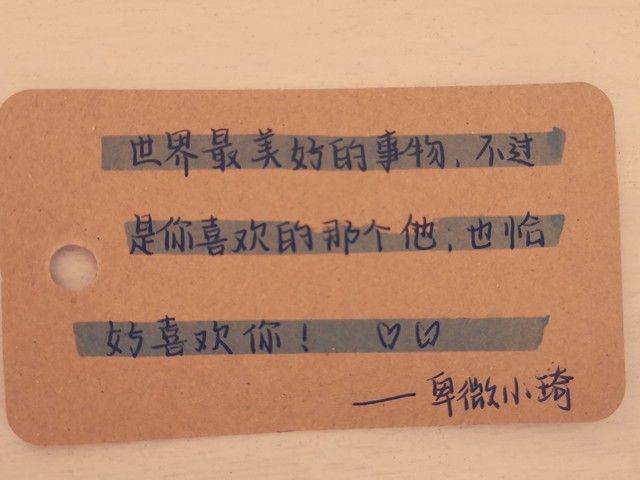 世界最美好的事物，不过
是你喜欢的那个他，也恰
好喜欢你！ ♡♡
——卑微小琦